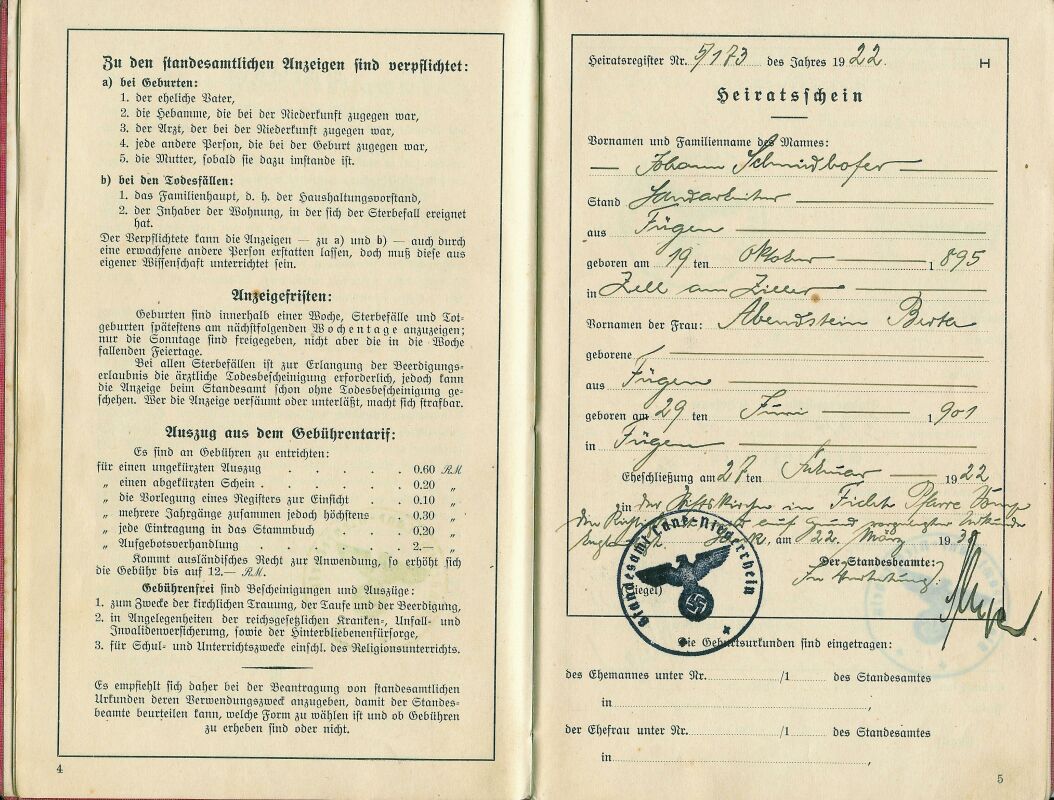 Zu den standesamtlichen Anzeigen sind verpflichtet:
a) bei Geburten:
1. der eheliche Vater,
2. die Hebamme, die bei der Niederkunft zugegen war,
3. der Arzt, der bei der Niederkunft zugegen war,
4. jede andere Person, die bei der Geburt zugegen war,
5. die Mutter, sobald sie dazu imstande ist.
b) bei den Todesfällen:
1. das Familienhaupt, d. h. der Haushaltungsvorstand,
2. der Inhaber der Wohnung, in der sich der Sterbefall ereignet
hat.
Der Verpflichtete kann die Anzeigen — zu a) und b) — auch durch
eine erwachsene andere Person erstatten lassen, doch muß diese aus
eigener Wissenschaft unterrichtet sein.
Anzeigefristen:
Geburten sind innerhalb einer Woche, Sterbefälle und Tot-
geburten spätestens am nächstfolgenden Wochentage anzuzeigen;
nur die Sonntage sind freigegeben, nicht aber die in die Woche
fallenden Feiertage.
Bei allen Sterbefällen ist zur Erlangung der Beerdigungs-
erlaubnis die ärztliche Todesbescheinigung erforderlich, jedoch kann
die Anzeige beim Standesamt schon ohne Todesbescheinigung ge-
schehen. Wer die Anzeige versäumt oder unterläßt, macht sich strafbar.
Auszug aus dem Gebührentarif:
Es sind an Gebühren zu entrichten:
für einen ungekürzten Auszug . . . . . 0.60 RM
„ einen abgekürzten Schein . . . . . 0.20 „
„ die Vorlegung eines Registers zur Einsicht . . 0.10 „
„ mehrere Jahrgänge zusammen jedoch höchstens 0.30 „
„ jede Eintragung in das Stammbuch . . 0.20 „
„ Aufgebotsverhandlung . . . . . 2.— „
Kommt ausländisches Recht zur Anwendung, so erhöht sich
die Gebühr bis auf 12.— RM.
Gebührenfrei sind Bescheinigungen und Auszüge:
1. zum Zwecke der kirchlichen Trauung, der Taufe und der Beerdigung,
2. in Angelegenheiten der reichsgesetzlichen Kranken-, Unfall- und
Invalidenversicherung, sowie der Hinterbliebenenfürsorge,
3. für Schul- und Unterrichtszwecke einschl. des Religionsunterrichts.
Es empfiehlt sich daher bei der Beantragung von standesamtlichen
Urkunden deren Verwendungszweck anzugeben, damit der Standes-
beamte beurteilen kann, welche Form zu wählen ist und ob Gebühren
zu erheben sind oder nicht.
4
Heiratsregister Nr. 5/173 des Jahres 1922. H
Heiratsschein
Vornamen und Familienname des Mannes:
Johann Schmidhofer
Stand Landarbeiter
aus Fügen
geboren am 19 ten Oktober 1895
in Zell am Ziller
Vornamen der Frau: Abendstein Berta
geborene
aus Fügen
geboren am 29 ten Juni 1901
in Fügen
Eheschließung am 27 ten Februar 1922
in der in Pfarre
auf Grund vorgelegter Urkunde
, am 22. März 1938
Der Standesbeamte:
In Vertretung:
(Siegel)
Standesamt Lank-Niederrhein
Die Geburtsurkunden sind eingetragen:
des Ehemannes unter Nr. /1 des Standesamtes
in ,
der Ehefrau unter Nr. /1 des Standesamtes
in
5